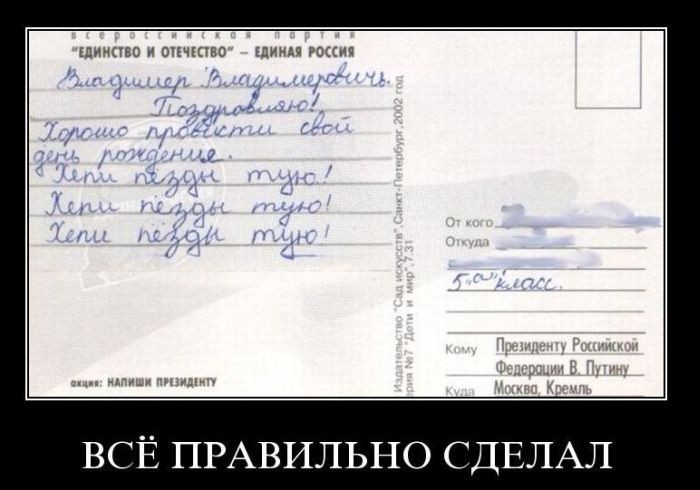 всероссийская партия
"ЕДИНСТВО И ОТЕЧЕСТВО" – ЕДИНАЯ РОССИЯ
Владимер Владимеровичь.
Поздровляю!
Хорошо провикти свой
день рождение.
Хепи пёзды тую!
Хепи пёзды тую!
Хепи пёзды тую!
акция: НАПИШИ ПРЕЗИДЕНТУ
Издательство "Сад искусств", Санкт-Петербург, 2002 год
рия №7 "Дети и мир", 7.31
От кого
Откуда
5 "а" класс.
Кому Президенту Российской
Федерации В. Путину
Куда Москва, Кремль
ВСЁ ПРАВИЛЬНО СДЕЛАЛ